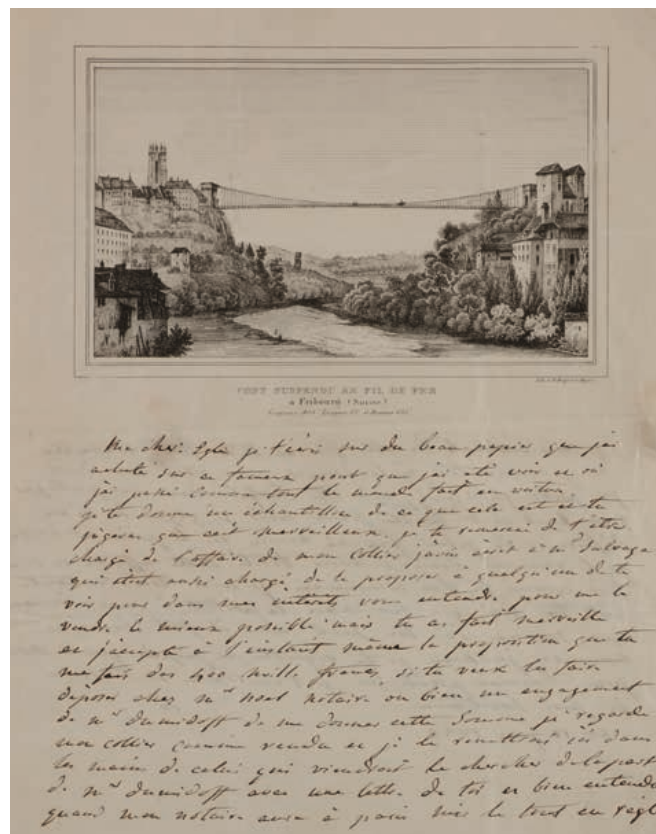 PONT SUSPENDU EN FIL DE FER
à Fribourg (Suisse)
Ma chère Eglé je t'écris sur du beau papier que j'ai
acheté sur ce fameux pont que j'ai été voir et où
j'ai passé comme tout le monde fait en voiture
je te donne un échantillon de ce que cela est et tu
jugeras que c'est merveilleux. je te remercie de t'etre
chargé de l'affaire de mon Collier j'avois écrit à mr Salvage
qui s'etoit aussi chargé de le proposer à quelqu'un de te
voir pour dans mes intérêts vous entendre pour me le
vendre le mieux possible mais tu as fait merveille
et j'accepte à l'instant même la proposition que tu
me fais des 400 mille francs si tu veux les faire
déposer chez mr Noel notaire ou bien un engagement
de mr dumidoff de me donner cette Somme je regarde
mon collier comme vendu et je le remettrai ici dans
les main de celui qui viendroit le chercher de la part
de mr dumidoff avec une lettre de toi et bien entendu
quand mon notaire aura à paris mis le tout en règle